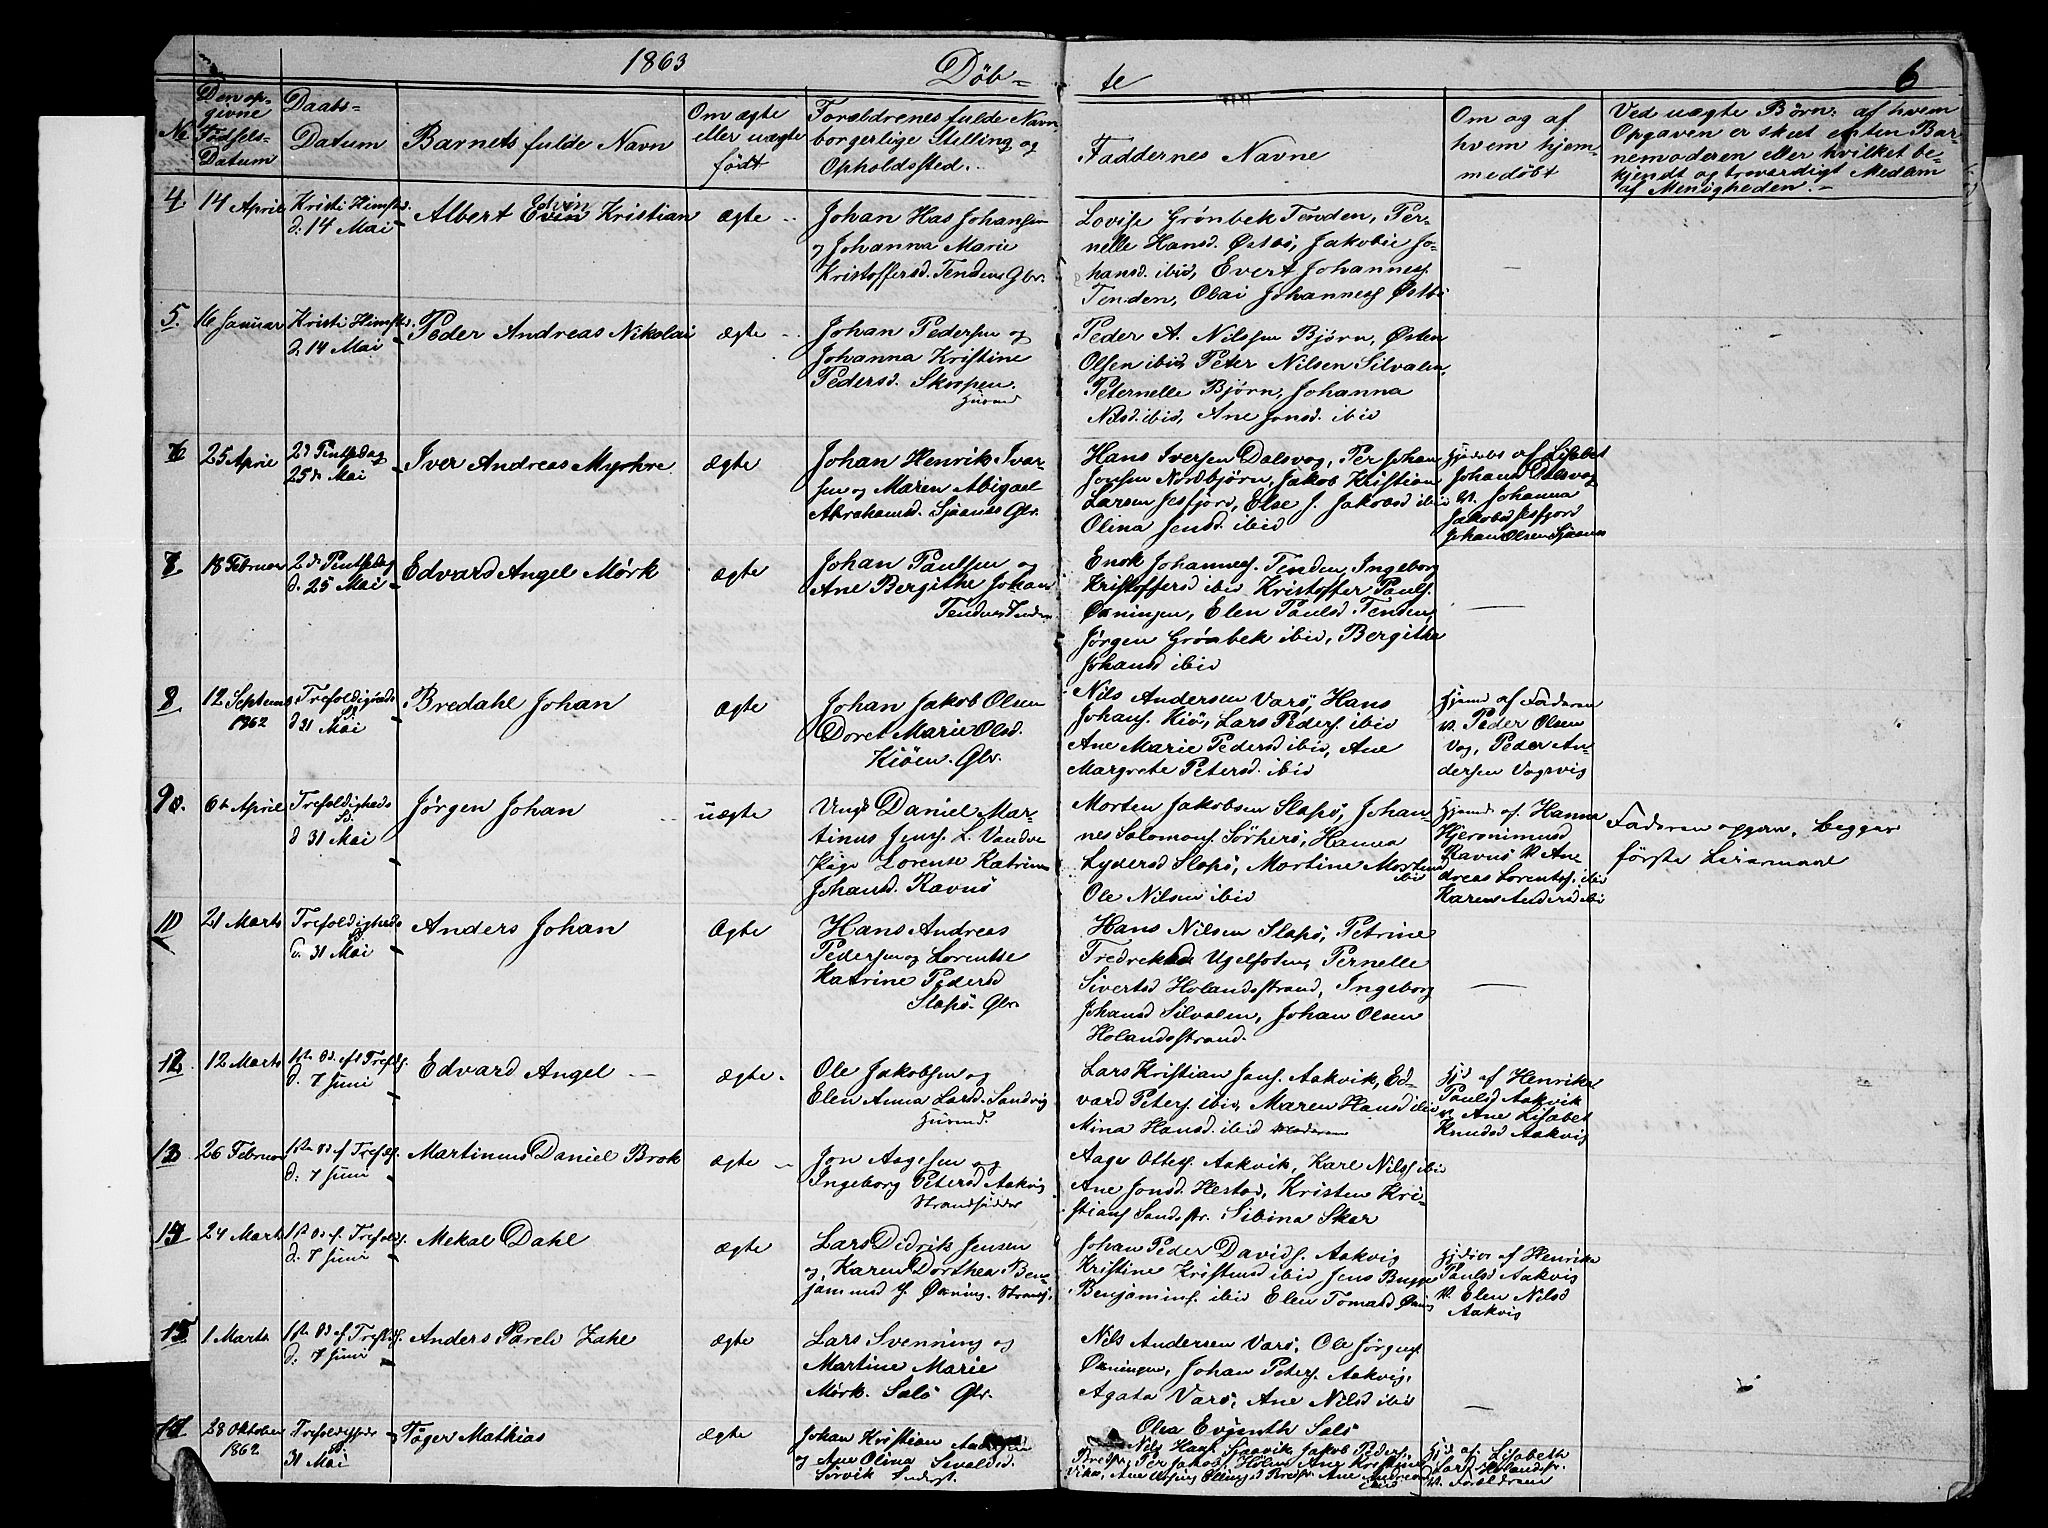 1863
Döb-
te
6
No
Den op-
givne
Födsels-
Datum
Daabs-
Datum
Barnets fulde Navn
Om ægte
eller uægte
födt
Forældrenes fulde Navn
borgerlige Stilling og
Opholdssted.
Faddernes Navne
Om og af
hvem hjem-
medöbt
Ved uægte Börn: af hvem
Opgaven er skeet enten Bar-
nemoderen eller hvilket be-
kjendt og troværdigt Medlem
af Menigheden.-
4
14 April
Kristi Himfts
d. 14 Mai
Albert Edvin Kristian
ægte
Johan Has Johansen
og Johanna Marie
Kristoffersd. Tenden Gbr.
Lovise Grönbek Tenden, Per-
nelle Hansd. Östbö, Jakobie Jo-
hansd. ibid, Evert Johannes.
Tenden, Olai Johannes. Östbö
—
5.
16 Januar
Kristi Himfts.
d. 14 Mai
Peder Andreas Nikolai
ægte
Johan Pedersen og
Johanna Kristine
Pedersd. Skorpen.
Husmd
Peder A. Nilssen Bjørn, Østen
Olsen ibid, Peter Nilsen Silvalen
Peternelle Bjørn, Johanna
Nilsd. ibid, Ane Jonsd. ibid
6
25 April
2d Pintsedag
25de Mai
Iver Andreas Myrhre
ægte
Johan Henrik Ivar-
sen og Maren Abigael
Abrahamsd. Sjaanes Gbr.
Hans Iversen Dalsvog, Per Johan
Jonsen Nordbjørn, Jakob Kristian
Larsen Jesfjord, Else J. Jakobsd ibid
Olina Jensd. ibid
Hjdöbt af Lisabet
Johansd Dalsvog
V. Johanna
Jakobsd Jesfjord
Johan Olsen Sjaanes
7
18 Februar
2d Pintsedag
d. 25 Mai
Edvard Angel Mørk
ægte
Johan Paulsen og
Ane Bergithe Johan
Tenden
Enok Johannes. Tenden, Ingeborg
Kristoffersd ibid Kristoffer Pauls.
Øxningen, Elen Paulsd Tenden,
Jørgen Grönbek ibid, Bergitha
Johansd ibid
—
8
12 Septemb
1862
Trefoldigheds
S.
d 31 Mai
Bredahl Johan
ægte
Johan Jakob Olsen
Doret Marie Olsd.
Kiöen. Gbr.
Nils Andersen Varö, Hans
Johans. Kiö, Lars Peders. ibid
Ane Marie Pedersd ibid, Ane
Margrete Petersd. ibid
Hjemd af Faderen
V. Peder Olsen
Vog, Peder An-
dersen Vogsvig
9
6te April
Trefoldigheds
S.
d 31 Mai
Jørgen Johan
uægte
Ungk Daniel Mar-
tinus Jens. L. Vandve
Pige Lorense Katrine
Johansd. Ravnö
Morten Jakobsen Slapö, Johan-
nes Salomons. Sörherö, Hanna
Lydersd Slapö, Martine Mortensd
ibid
Ole Nilsen ibid
Hjemd af. Hanna
Hjeronimusd
Ravnö V. Ane
dreas Lorents. ibid
Karen Andersd ibid
Faderen opgevn. begges
förste Leiermaal
10
21 Marts
Trefoldigheds
S.
d. 31 Mai
Anders Johan
ægte
Hans Andreas
Pedersen og Lorentse
Katrine Pedersd
Slapö. Gbr.
Hans Nilsen Slapö, Petrine
Fredreksd Ugelfoten, Pernelle
Sivertsd Holandsstrand, Ingeborg
Johansd Silvalen, Johan Olsen
Holandsstrand.
—
12
12 Marts
1ste S. eft Trefolds.
d. 7 Juni
Edvard Angel
ægte
Ole Jakobsen og
Elen Anna Larsd. Sandvig
Husmd.
Lars Kristian Jans. Aakvik, Ed-
vard Peters. ibid, Maren Hansd ibid
Nina Hansd. ibid Moderen
Hjd af Henrika
Paulsd Aakvik
V. Ane Lisabet
Knudsd Aakvig
13
26 Februar
1ste S. ef Trefolds.
d. 7 Juni
Martinus Daniel Brok
ægte
Jon Aagesen og
Ingeborg Petersd Aakvig
Strandsidder
Aage Ottes. Aakvik, Karl Nils. ibid
Ane Jonsd. Hestad, Kristen Kri-
stians Sandstr. Sibina Skar
14
24 Marts
1ste S. ef. Trefolds.
d. 7 Juni
Mekal Dahl
ægte
Lars Didrik Jensen
og Karen Dorthea Ben-
jaminsd. Øxning. Strands.
Johan Peder Davids. Aakvig
Kristine Kristensd ibid Jens Bugge
Benjamins. ibid Elen Tomasd Øxnig
Hjd af Henrika
Paulsd Aakvig
V. Elen Nilsd
Aakvig
15
1 Marts
1ste S. ef Trefolds.
d. 7 Juni
Anders Pareli Zahl
ægte
Lars Svenning og
Martine Marie
Mørk. Salö Gbr.
Nils Andersen Varö, Ole Jörgens
Øxningen, Johan Peters. Aakvig,
Agata Varö, Ane Nilsd ibid
Olea Evjenth Salö
—
11
28 Oktober
1862
Trefoldigheds
S.
31 Mai
Töger Mathias
ægte
Johan Kristian
og Ane Olina Sivaldsd.
Sörvik Inderst.
Nils Hans. Sjaavik, Jakob Peders.
Per Jakobs. Holm, Ane Kristine
Ane
ibid
Hjd af. Lisabeth
Larsd Holandsstr.
V. Forældrene